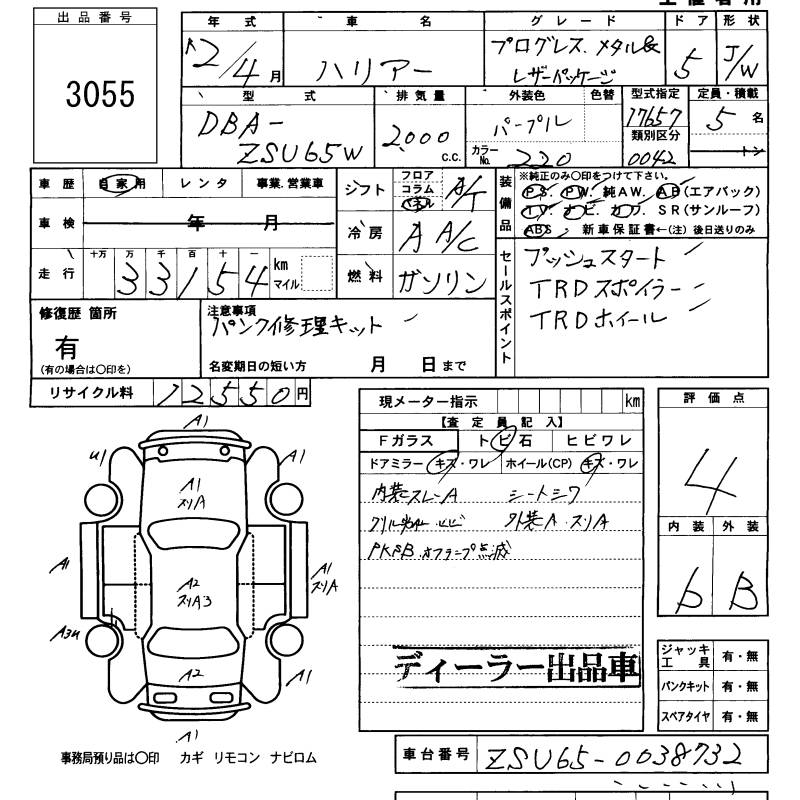 出品番号
3055
年式 車名 グレード ドア 形状
12/4月 ハリアー プログレス.メタル& レザーパッケージ 5 5/W
型式 排気量 外装色 色替 型式指定 定員・積載
DBA-ZSU65W 2,000 c.c. パープル 17657 5名
カラーNo. 220 類別区分 0042 トン
車歴 自家用 レンタ 事業.営業車
車検 年 月
走行 十万 万 千 百 十 一 33154 km マイル
シフト フロア コラム パネル A/T
冷房 A A/C
燃料 ガソリン
装備品 ※純正のみ〇印をつけて下さい。
PS. PW. 純AW. AB(エアバック)
TV. ナビ. カワ. SR(サンルーフ)
ABS 新車保証書←(注)後日送りのみ
セールスポイント
プッシュスタート
TRDスポイラー
TRDホイール
修復歴 箇所
有
(有の場合は〇印を)
注意事項
パンク修理キット
名変期日の短い方 月 日まで
リサイクル料 12550円
現メーター指示 km
【査定員記入】
Fガラス トビ石 ヒビワレ
ドアミラー キズ・ワレ ホイール(CP) キズ・ワレ
内装スレA シートシワ
外装A.スリA
PKSB.オフランプ点滅
ディーラー出品車
評価点
4
内装 外装
b B
ジャッキ工具 有・無
パンクキット 有・無
スペアタイヤ 有・無
A1
U1
A1
A1 スリA
A1
A2 スリA3
A1 スリA
A3U
A2
A1
A1
事務局預り品は〇印 カギ リモコン ナビロム
車台番号 ZSU65-0038732